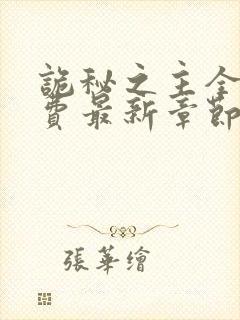 詭秘之主全
費最新章節
張華繪